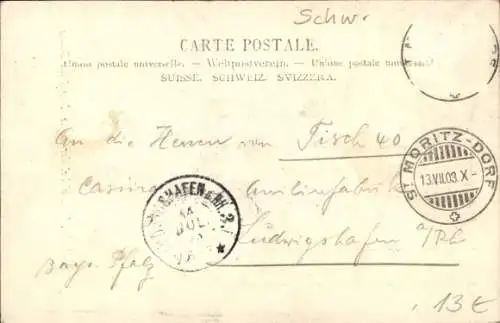 Schw.
CARTE POSTALE.
Union postale universelle. — Weltpostverein. — Unione postale univers
SUISSE. SCHWEIZ. SVIZZERA.
An die Herren von Tisch 40
ST MORITZ-DORF
13.VII.03.X-
Casino Anilinfabrik
HAFEN a. RH.
14
JUL
Ludwigshafen a/Rh
Bayr. Pfalz
13€